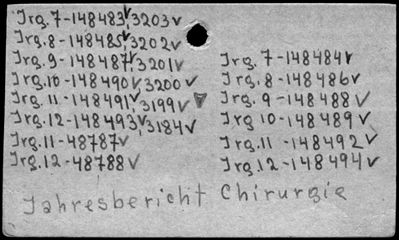 Jrg. 7-148483, 3203
Jrg. 8-148485, 3202
Jrg. 9-148487, 3201
Jrg. 10-148490, 3200
Jrg. 11-148491, 3199
Jrg. 12-148493, 3184
Jrg. 11-48787
Jrg. 12-48788
Jrg. 7-148484
Jrg. 8-148486
Jrg. 9-148488
Jrg 10-148489
Jrg. 11-148492
Jrg. 12-148494
Jahresbericht Chirurgie